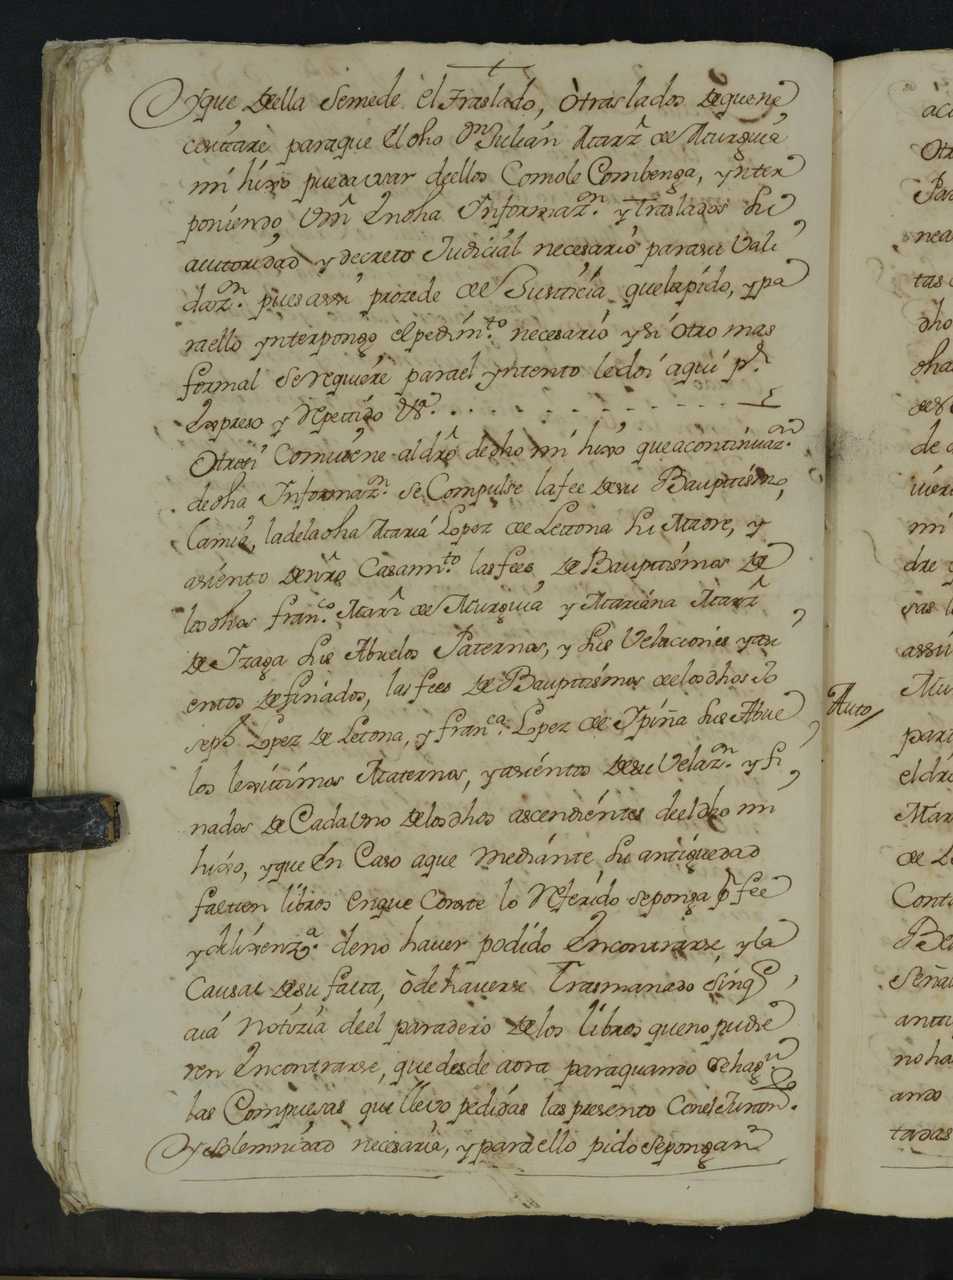 yque della Semede el traslado, òtraslados dequene
cesitare paraque el dho Dn Julian Marz de Murguia
mi hixo pueda usar deellos Comole Combenga, ynter
poniendo Vm en dha Informazn. y traslados su
autoridad y decreto Judicial necesario parasu Vali
dazn. pues assi prozede de Justicia quelapido, ypa
raello ynterpongo el pedimto. necesario ysi otro mas
formal Serequiere parael yntento ledoi aqui pr.
Expreso y Repetido &a.
Otrosi Combiene alдро dedho mi hixo que acontinuazn.
dedha Informazn. se Compulse lafee desu Bauptismo,
Camia, ladeladha Maria Lopez de Letona su Madre, y
asiento denro Casamto. las fees de Bauptismos de
losdhos franco. Marz de Murguia y Mariana Marz
de Izaga sus Abuelos Paternos, y sus Velaciones yasi
entos definados, las fees de Bauptismos de los dhos Jo
seph Lopez de Letona, y franca. Lopez de Ipiña sus Abue
los lexitimos Maternos, yasientos desu Velazn. y fi
nados de Cada uno delosdhos ascendientes deel dho mi
hixo, yque en Caso aque mediante su antiguedad
falten libros enque Conste lo Referido seponga pr fee
ydilixenza. deno haver podido encontrarse, yla
Causal desu falta, òdehaverse trasmanado sinq
aia Notizia deel paradero delos libros queno pudie
ren encontrarse, quedesde aora paraquando sehagn
las Compulsas que llevo pedidas las presento Conel Juramto.
ysolemnidad necesaria, yparaello pido sepongan
Auto